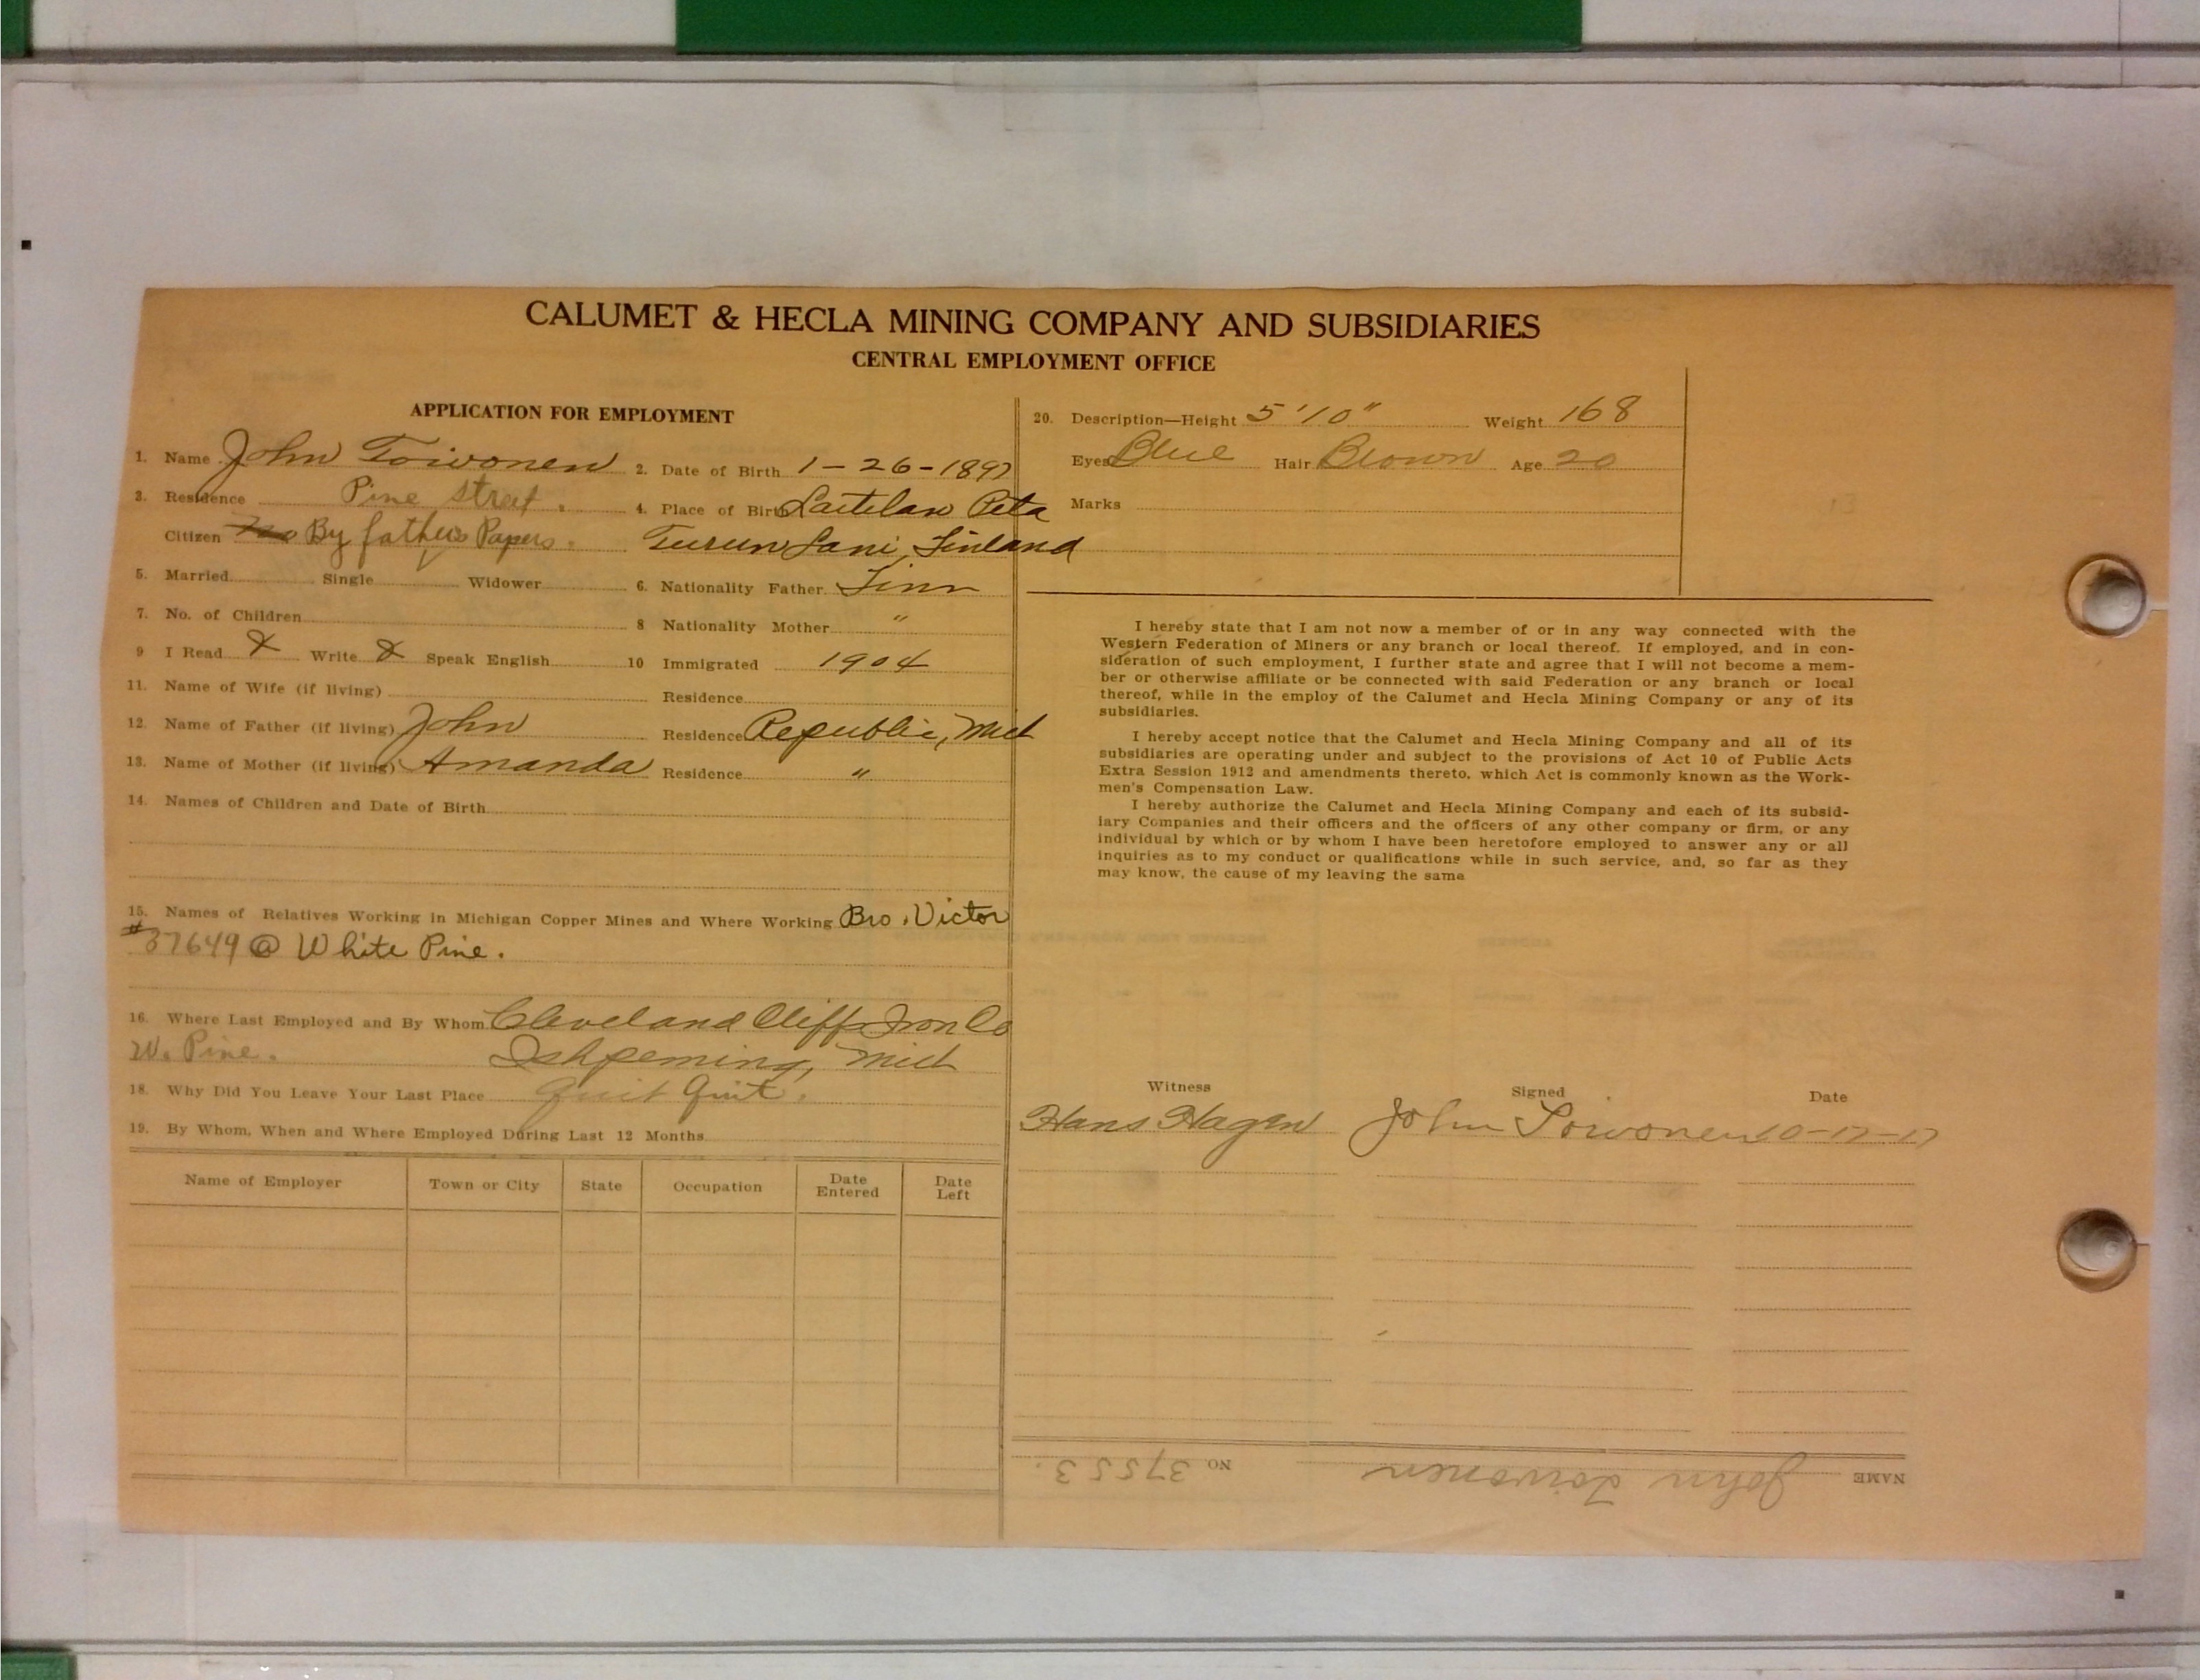 CALUMET & HECLA MINING COMPANY AND SUBSIDIARIES
CENTRAL EMPLOYMENT OFFICE
APPLICATION FOR EMPLOYMENT
1. Name John Toivonen 2. Date of Birth 1-26-1897
3. Residence Pine Street. 4. Place of Birth Laitelan Pita
Citizen By father's Papers. Turun Lani, Finland
5. Married Single Widower 6. Nationality Father Finn
7. No. of Children 8 Nationality Mother "
9 I Read X Write X Speak English 10 Immigrated 1904
11. Name of Wife (if living) Residence
12. Name of Father (if living) John Residence Republic, Mich
13. Name of Mother (if living) Amanda Residence "
14. Names of Children and Date of Birth
15. Names of Relatives Working in Michigan Copper Mines and Where Working Bro. Victor
#37649 @ White Pine.
16. Where Last Employed and By Whom Cleveland Cliffs Iron Co
W. Pine. Ishpeming, Mich
18. Why Did You Leave Your Last Place quit Quit.
19. By Whom, When and Where Employed During Last 12 Months
Name of Employer Town or City State Occupation Date Entered Date Left
20. Description—Height 5'10" Weight 168
Eyes Blue Hair Brown Age 20
Marks
I hereby state that I am not now a member of or in any way connected with the
Western Federation of Miners or any branch or local thereof. If employed, and in con-
sideration of such employment, I further state and agree that I will not become a mem-
ber or otherwise affiliate or be connected with said Federation or any branch or local
thereof, while in the employ of the Calumet and Hecla Mining Company or any of its
subsidiaries.
I hereby accept notice that the Calumet and Hecla Mining Company and all of its
subsidiaries are operating under and subject to the provisions of Act 10 of Public Acts
Extra Session 1912 and amendments thereto, which Act is commonly known as the Work-
men's Compensation Law.
I hereby authorize the Calumet and Hecla Mining Company and each of its subsid-
iary Companies and their officers and the officers of any other company or firm, or any
individual by which or by whom I have been heretofore employed to answer any or all
inquiries as to my conduct or qualifications while in such service, and, so far as they
may know, the cause of my leaving the same
Witness Signed Date
Hans Hagen John Toivonen 10-17-17
NAME John Toivonen NO. 37553.